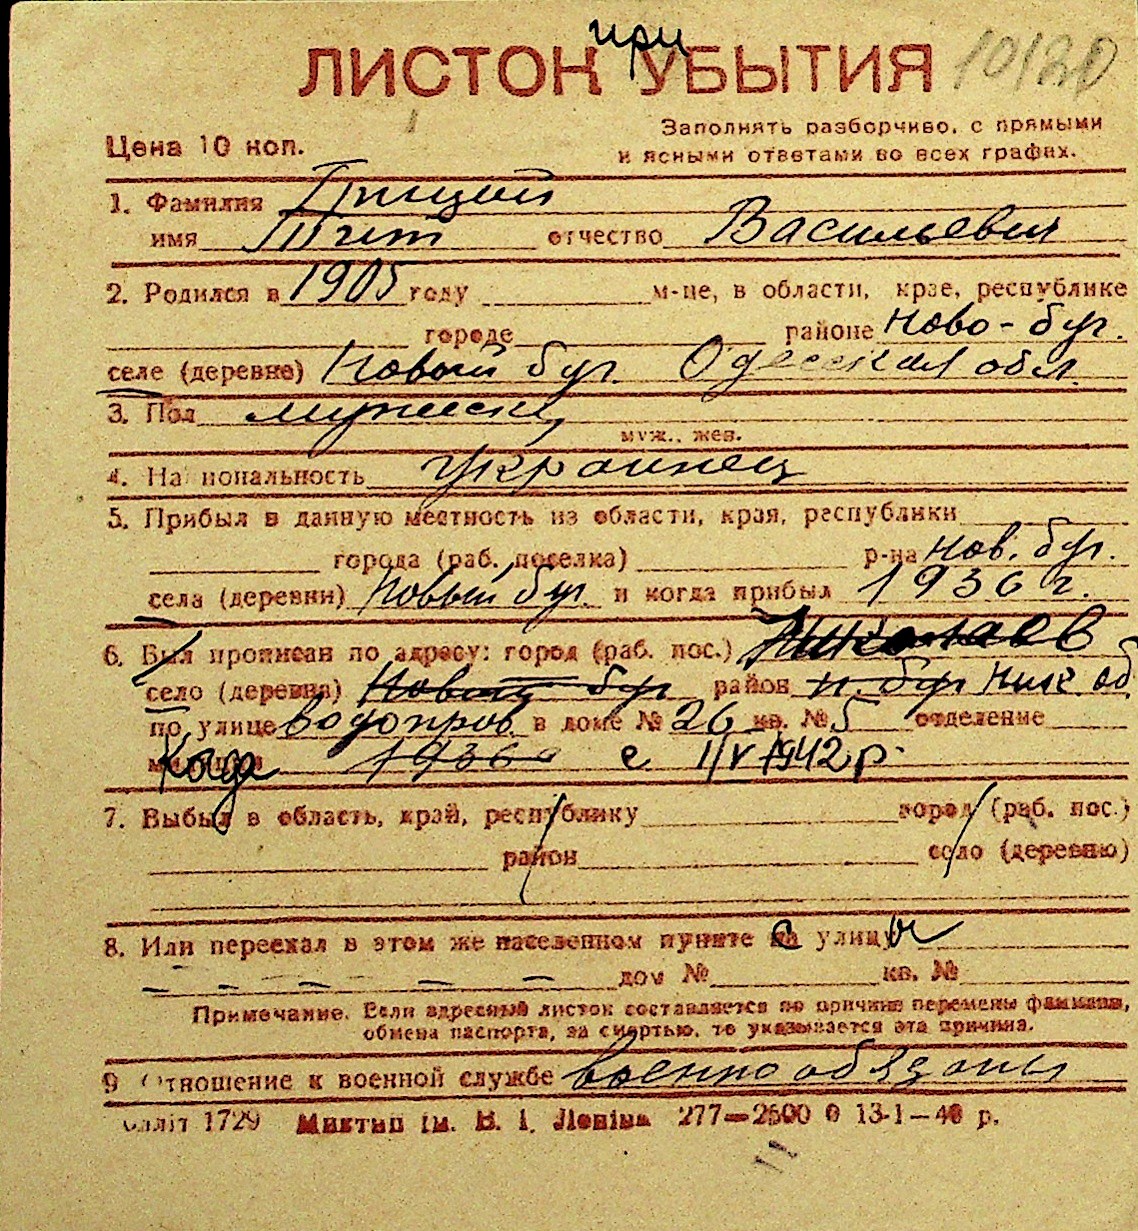 при
ЛИСТОК УБЫТИЯ 10120
Цена 10 коп.
Заполнять разборчиво, с прямыми
и ясными ответами во всех графах.
1. Фамилия Грицай
имя отчество Васильевич
2. Родился в 1905 году м-це, в области, крае, республике
городе районе Ново-буг.
селе (деревне) Новый буг. Одесская обл.
3. Пол мужской
муж., жен.
4. Национальность украинец
5. Прибыл в данную местность из области, края, республики
города (раб. поселка) р-на Нов. буг.
села (деревни) Новый буг. и когда прибыл 1936 г.
6. Был прописан по адресу: город (раб. пос.) Николаев
село (деревня) Новый буг район Н. буг Ник об
по улице водопров. в доме № 26 кв. № 5 отделение
милиции 1936 с 11/V 1942 р.
7. Выбыл в область, край, республику город (раб. пос.)
район село (деревню)
8. Или переехал в этом же населенном пункте на улицу
дом № кв. №
Примечание. Если адресный листок составляется по причине перемены фамилии,
обмена паспорта, за смертью, то указывается эта причина.
9 Отношение к военной службе военнообязаный
1729 Миктип ім. В. І. Леніна 277—2600 0 13-1-40 р.